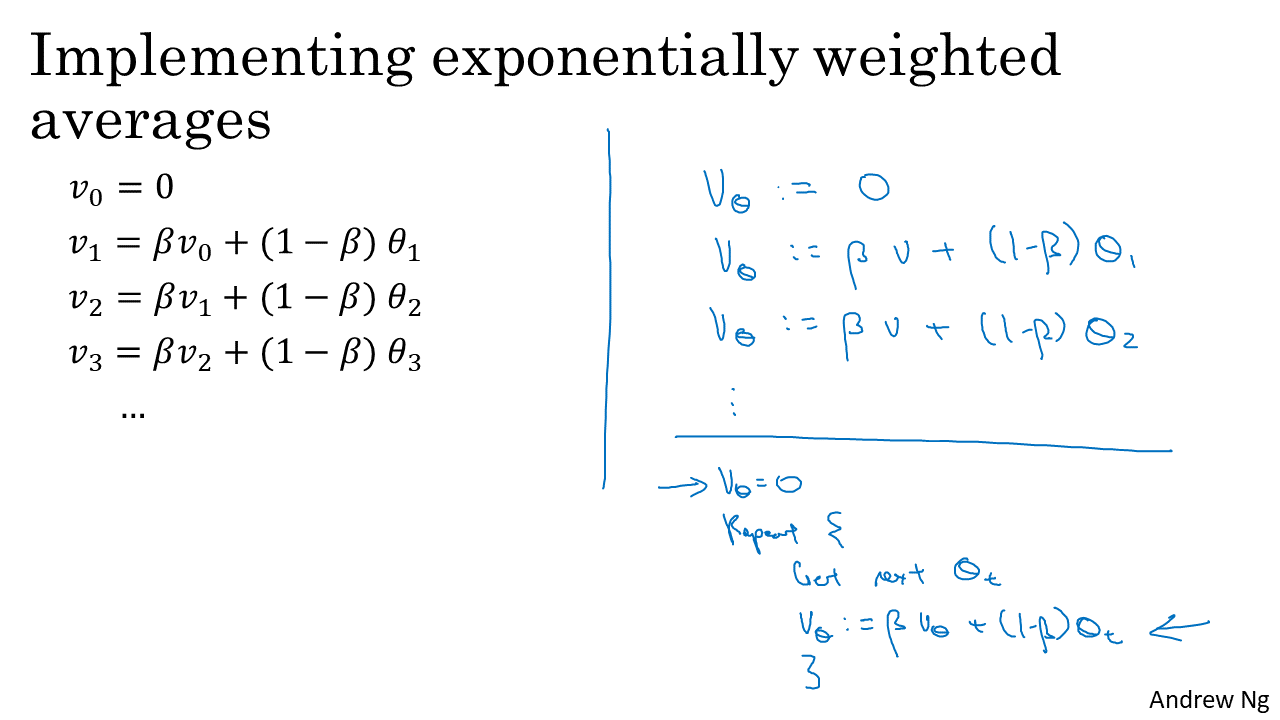 Implementing exponentially weighted
averages
v₀ = 0
v₁ = βv₀ + (1 − β) θ₁
v₂ = βv₁ + (1 − β) θ₂
v₃ = βv₂ + (1 − β) θ₃
...
V_θ := 0
V_θ := β v + (1-β) θ₁
V_θ := β v + (1-β) θ₂
⋮
→ V_θ = 0
Repeat {
Get next θ_t
V_θ := β V_θ + (1-β) θ_t ←
}
Andrew Ng